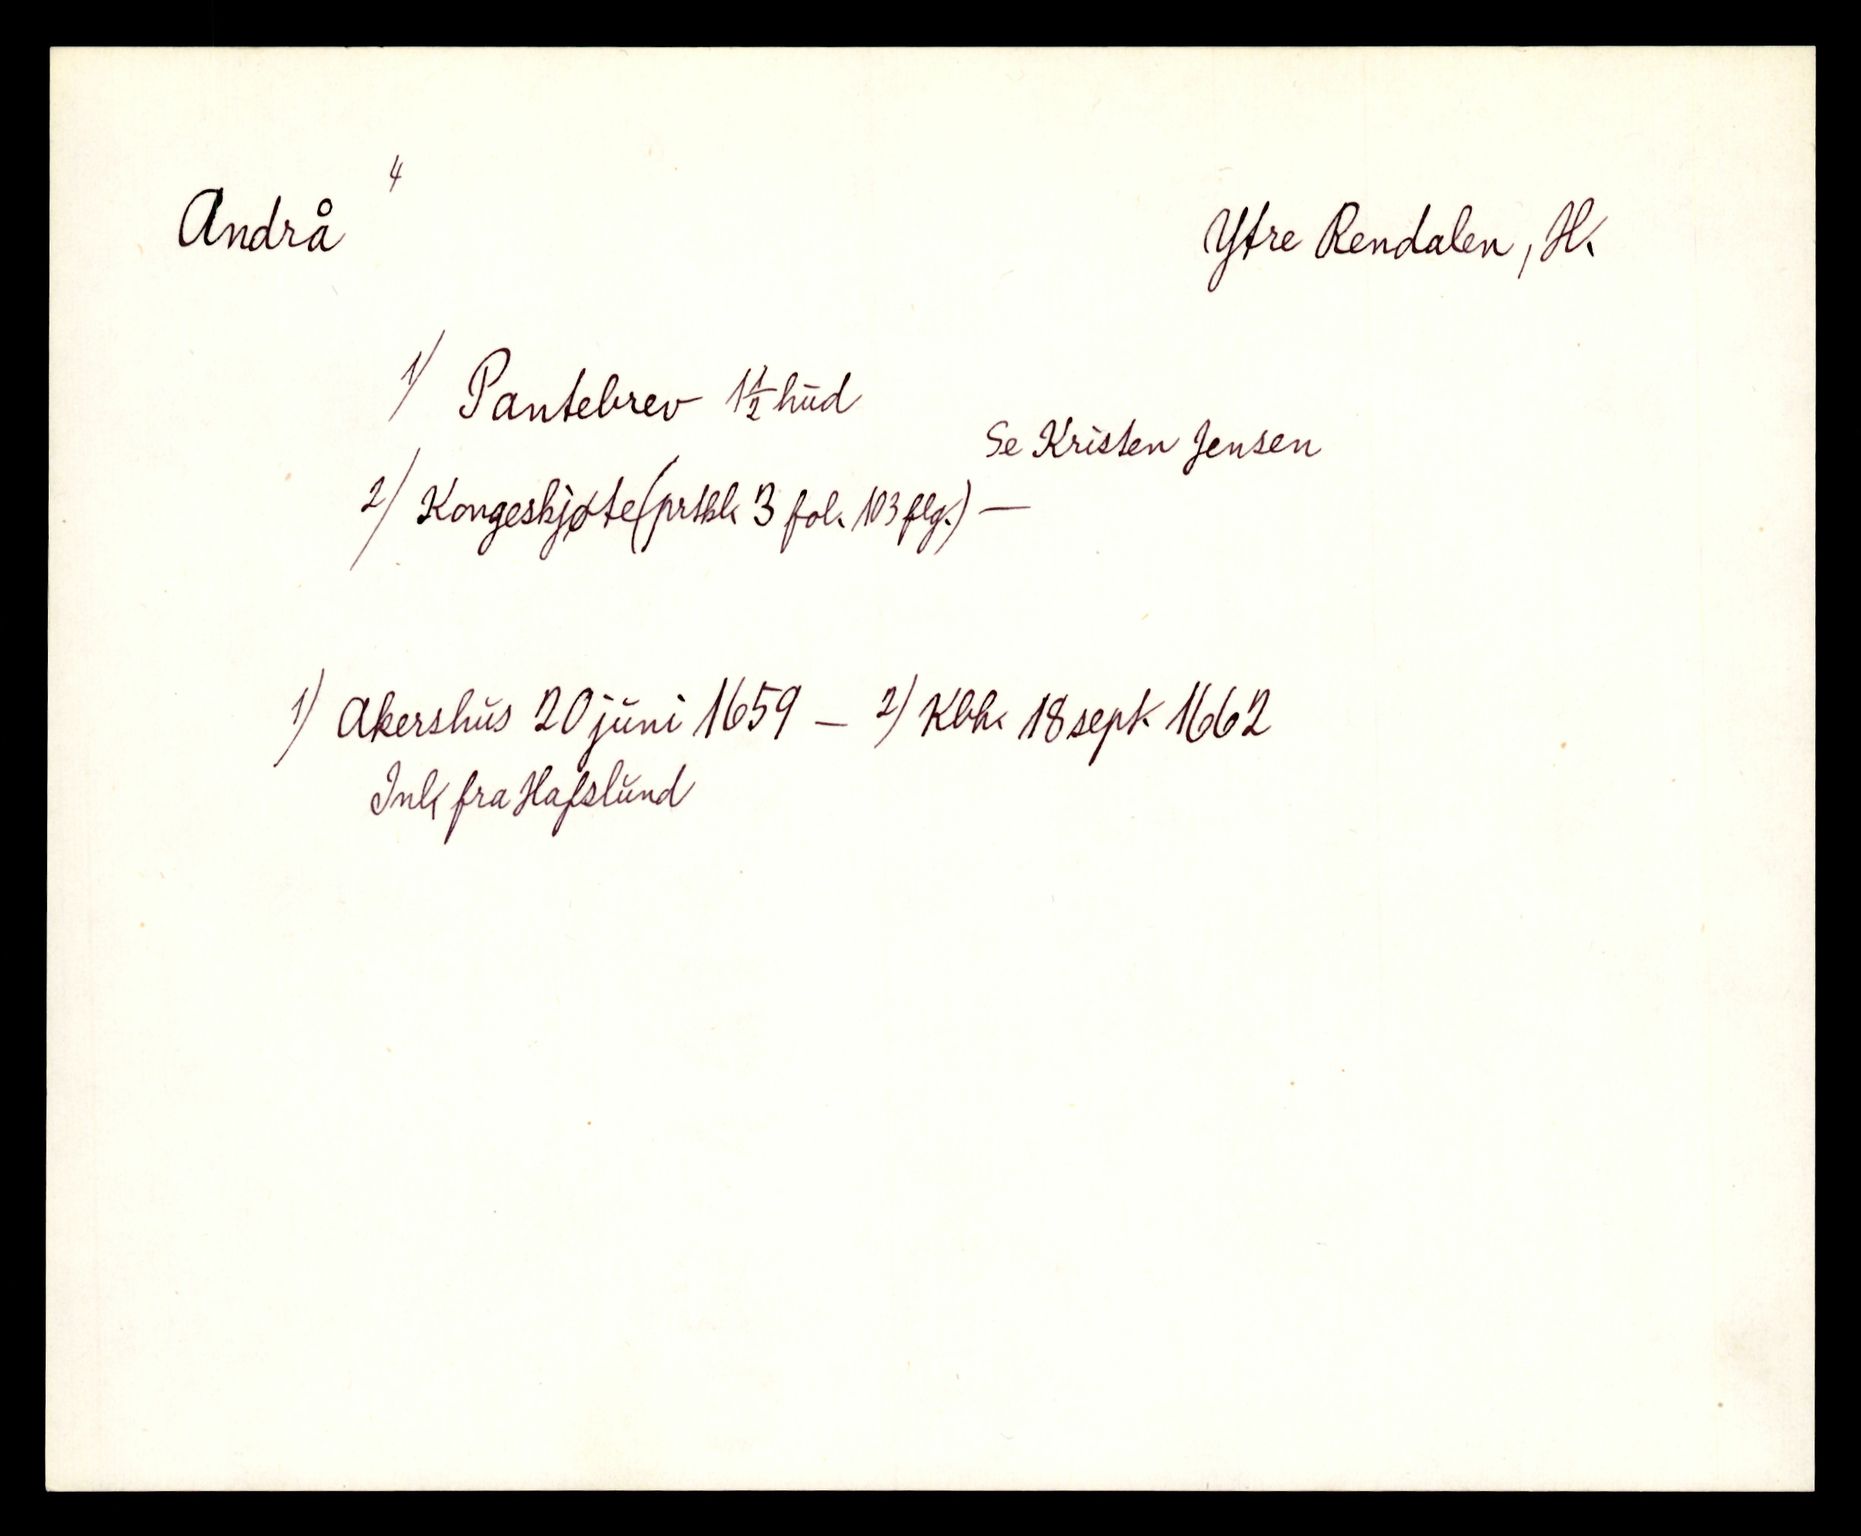 Andrå 4 Ytre Rendalen, H.
1) Pantebrev 1½ hud
Se Kristen Jensen
2) Kongeskjøte (prtkl. 3 fol. 103 flg.) —
1) Akershus 20 juni 1659 — 2) Kbh. 18 sept. 1662
Inl. fra Hafslund